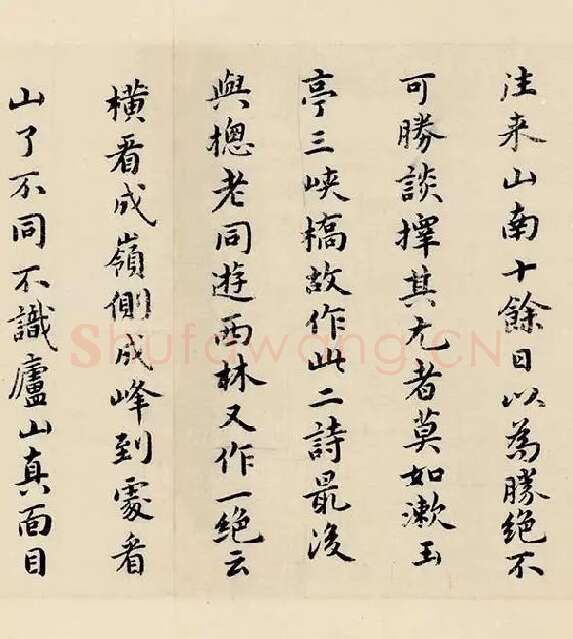 往来山南十餘日以為勝絶不
可勝談擇其尤者莫如漱玉
亭三峡橋故作此二詩最後
與摠老同遊西林又作一絶云
橫看成嶺側成峰到處看
山了不同不識廬山真面目
Shufawang.CN